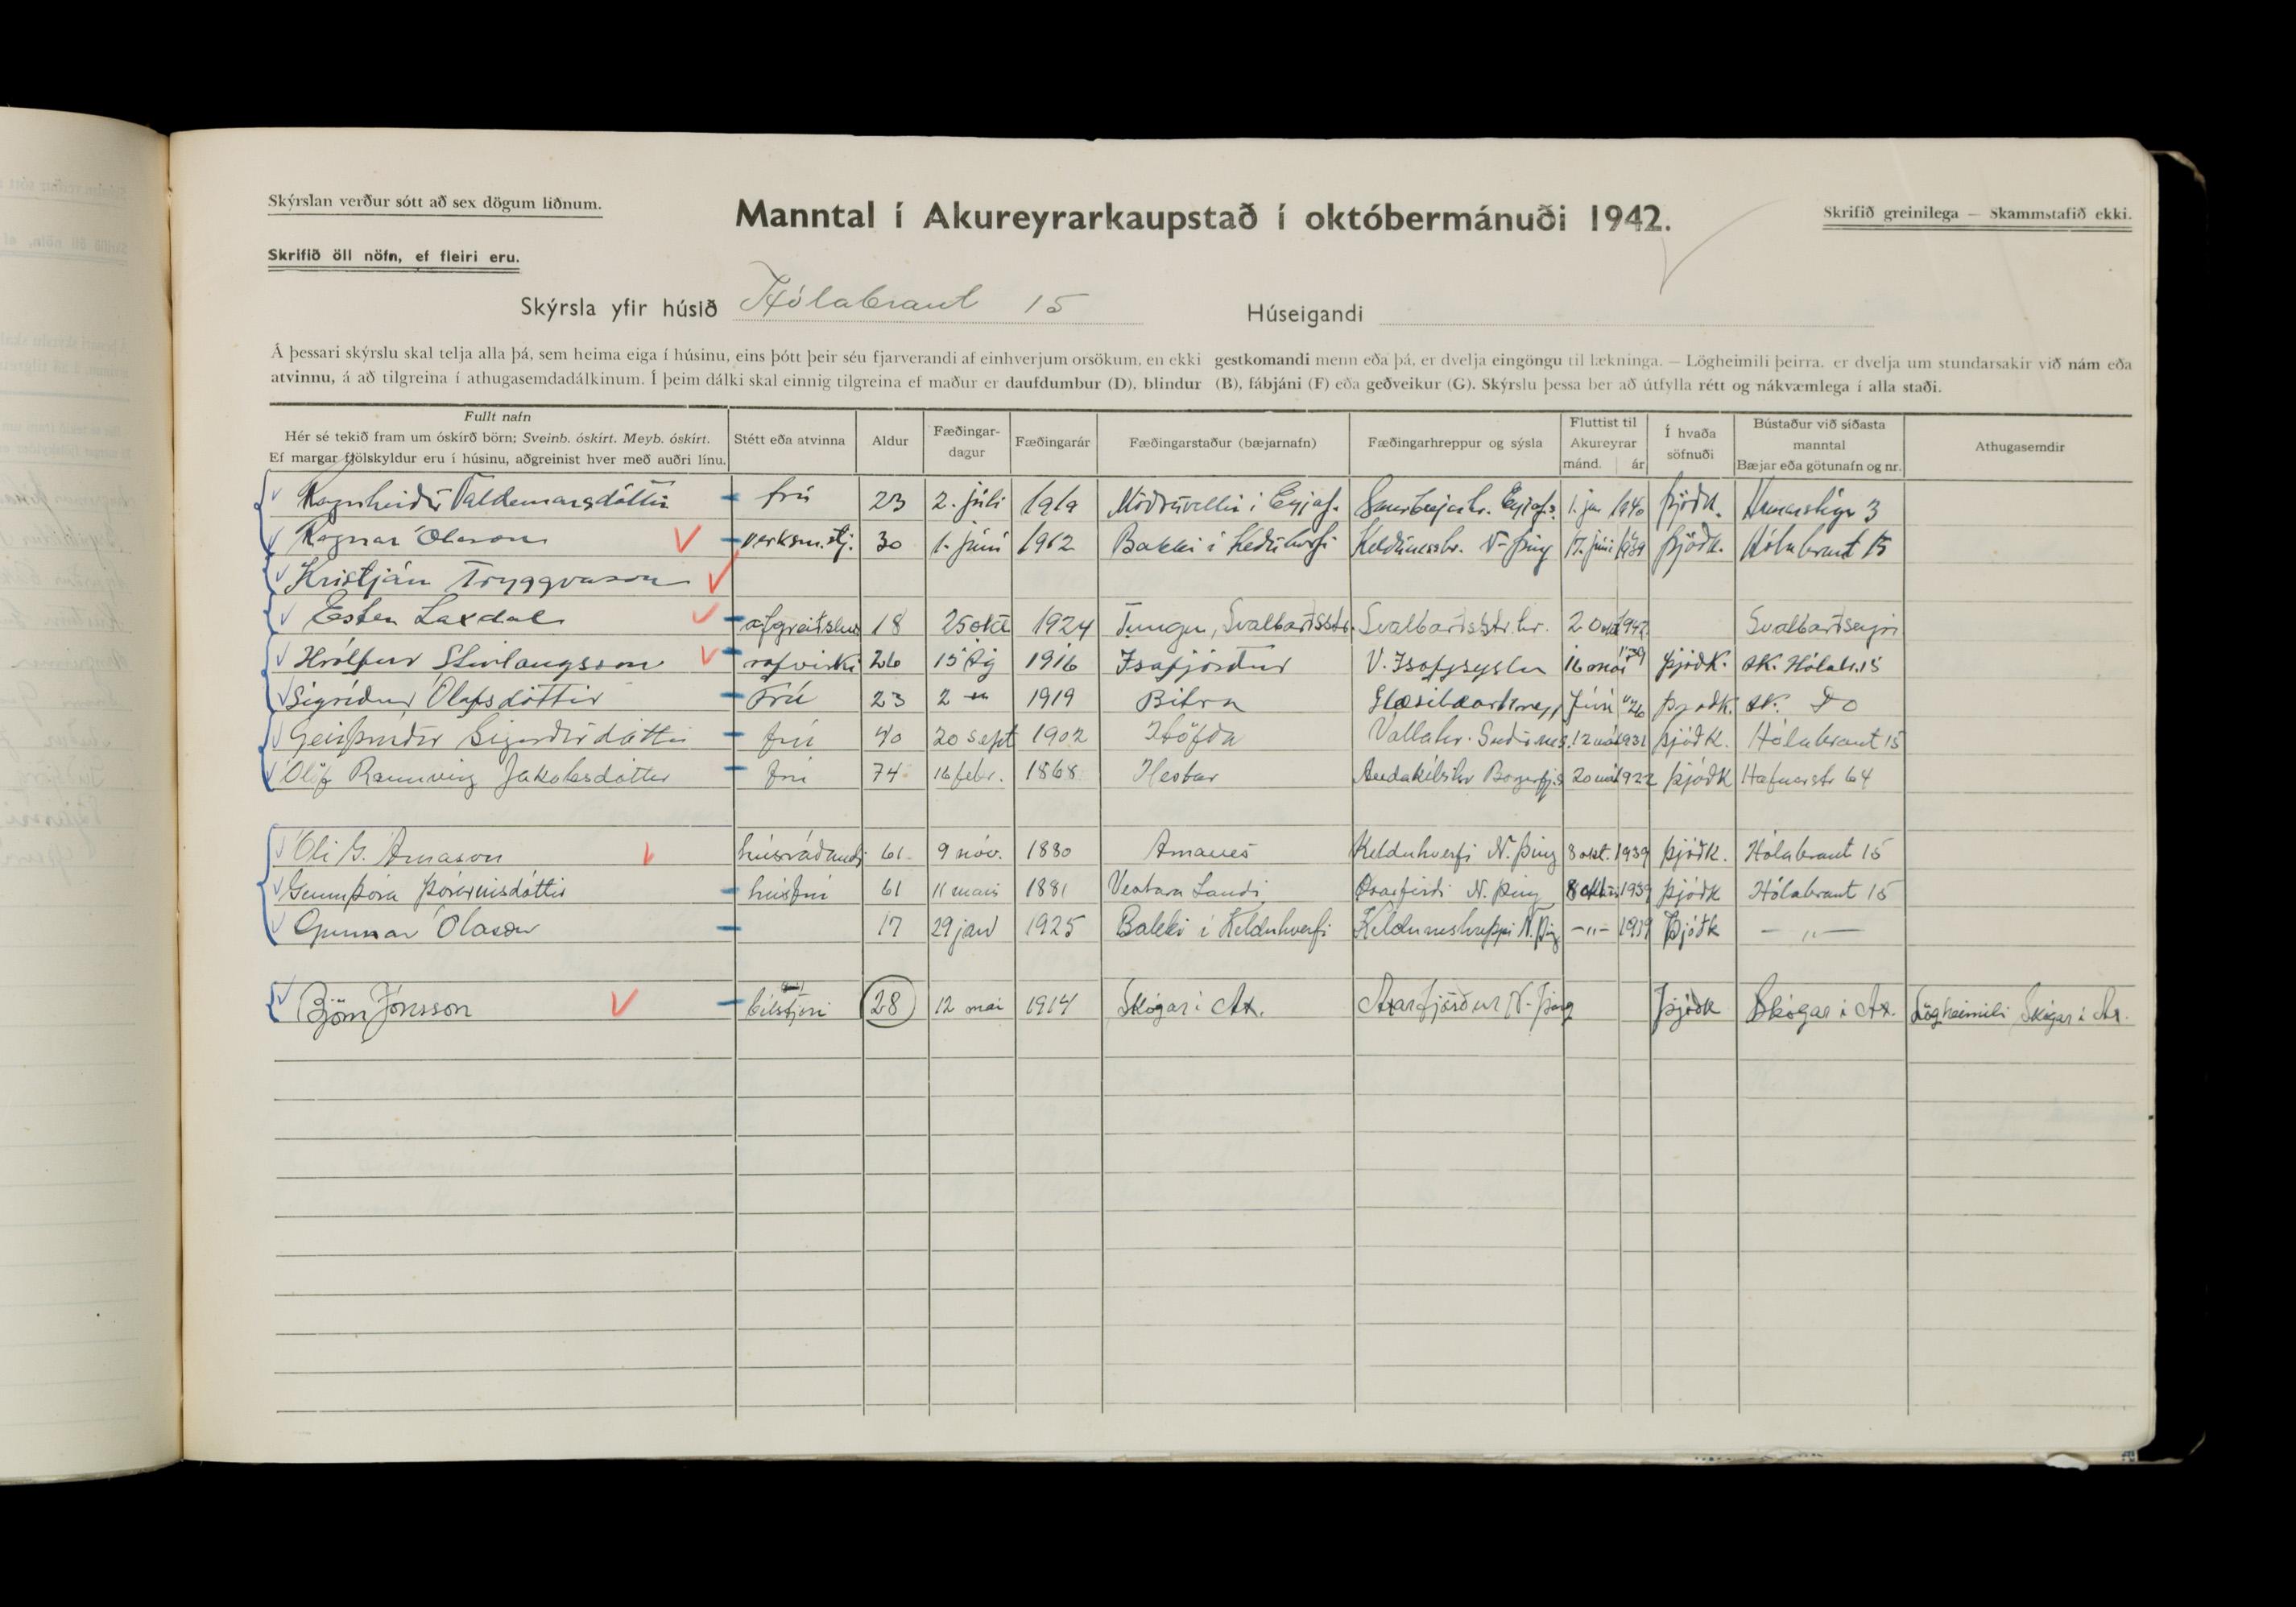 Skýrslan verður sótt að sex dögum liðnum.
Manntal í Akureyrarkaupstað í októbermánuði 1942.
Skrifið greinilega — Skammstafið ekki.
Skrifið öll nöfn, ef fleiri eru.
Skýrsla yfir húsið Hólabraut 15 Húseigandi
Á þessari skýrslu skal telja alla þá, sem heima eiga í húsinu, eins þótt þeir séu fjarverandi af einhverjum orsökum, en ekki gestkomandi menn eða þá, er dvelja eingöngu til lækninga. — Lögheimili þeirra, er dvelja um stundarsakir við nám eða
atvinnu, á að tilgreina í athugasemdadálkinum. Í þeim dálki skal einnig tilgreina ef maður er daufdumbur (D), blindur (B), fábjáni (F) eða geðveikur (G). Skýrslu þessa ber að útfylla rétt og nákvæmlega í alla staði.
Fullt nafn
Hér sé tekið fram um óskírð börn; Sveinb. óskírt. Meyb. óskírt.
Ef margar fjölskyldur eru í húsinu, aðgreinist hver með auðri línu.
Stétt eða atvinna
Aldur
Fæðingar-
dagur
Fæðingarár
Fæðingarstaður (bæjarnafn)
Fæðingarhreppur og sýsla
Fluttist til
Akureyrar
mánd. ár
Í hvaða
söfnuði
Bústaður við síðasta
manntal
Bæjar eða götunafn og nr.
Athugasemdir
Ragnheiður Valdemarsdóttir frú 23 2. júlí 1919 Möðruvellir í Eyjaf. Saurbæjarhr. Eyjafs. 1. jan 1940 þjóðk. 3
Ragnar Ólason verksm.stj. 30 1. júní 1912 Bakki í Kelduhverfi Kelduneshr. N-Þing 17. júní 1939 þjóðk. Hólabraut 15
Kristján Tryggvason
Esther Laxdal 18 25 okt 1924 Tunga, Svalbarðsstr. Svalbarðsstr.hr. 2 Okt 1942 Svalbarðseyri
Hrólfur Sturlaugsson rafvirki 26 15 Ág 1916 Ísafjörður V. Ísafjsýsla 16 maí "39 þjóðk. AK. Hólabr. 15
Sigríður Ólafsdóttir Frú 23 2 — 1919 Bitra Júní "26 þjóðk. AK. Do
Geirþrúður Sigurðardóttir frú 40 20 sept 1902 Höfða Vallahr. 12 maí 1931 þjóðk. Hólabraut 15
Ólöf Rannveig Jakobsdóttir frú 74 16 febr. 1868 Hestur Andakílshr Borgarfj.s 20 maí 1922 þjóðk Hafnarstr 64
Óli G. Árnason húsráðandi 61 9 nóv. 1880 Árnanes Kelduhverfi N. Þing 8 okt. 1939 þjóðk. Hólabraut 15
Gunnþóra Þórarinsdóttir húsfrú 61 11 mars 1881 Vestara Landi Öxarfirði N. Þing 8 1939 þjóðk Hólabraut 15
Gunnar Ólason 17 29 jan 1925 Bakki í Kelduhverfi Kelduneshreppi N. Þing —"— 1939 Þjóðk —"—
Björn Jónsson bílstjóri 28 12 maí 1914 Skógar í Ax. Axarfjörður N-Þing Þjóðk Skógar í Ax. Lögheimili Skógar í Ax.